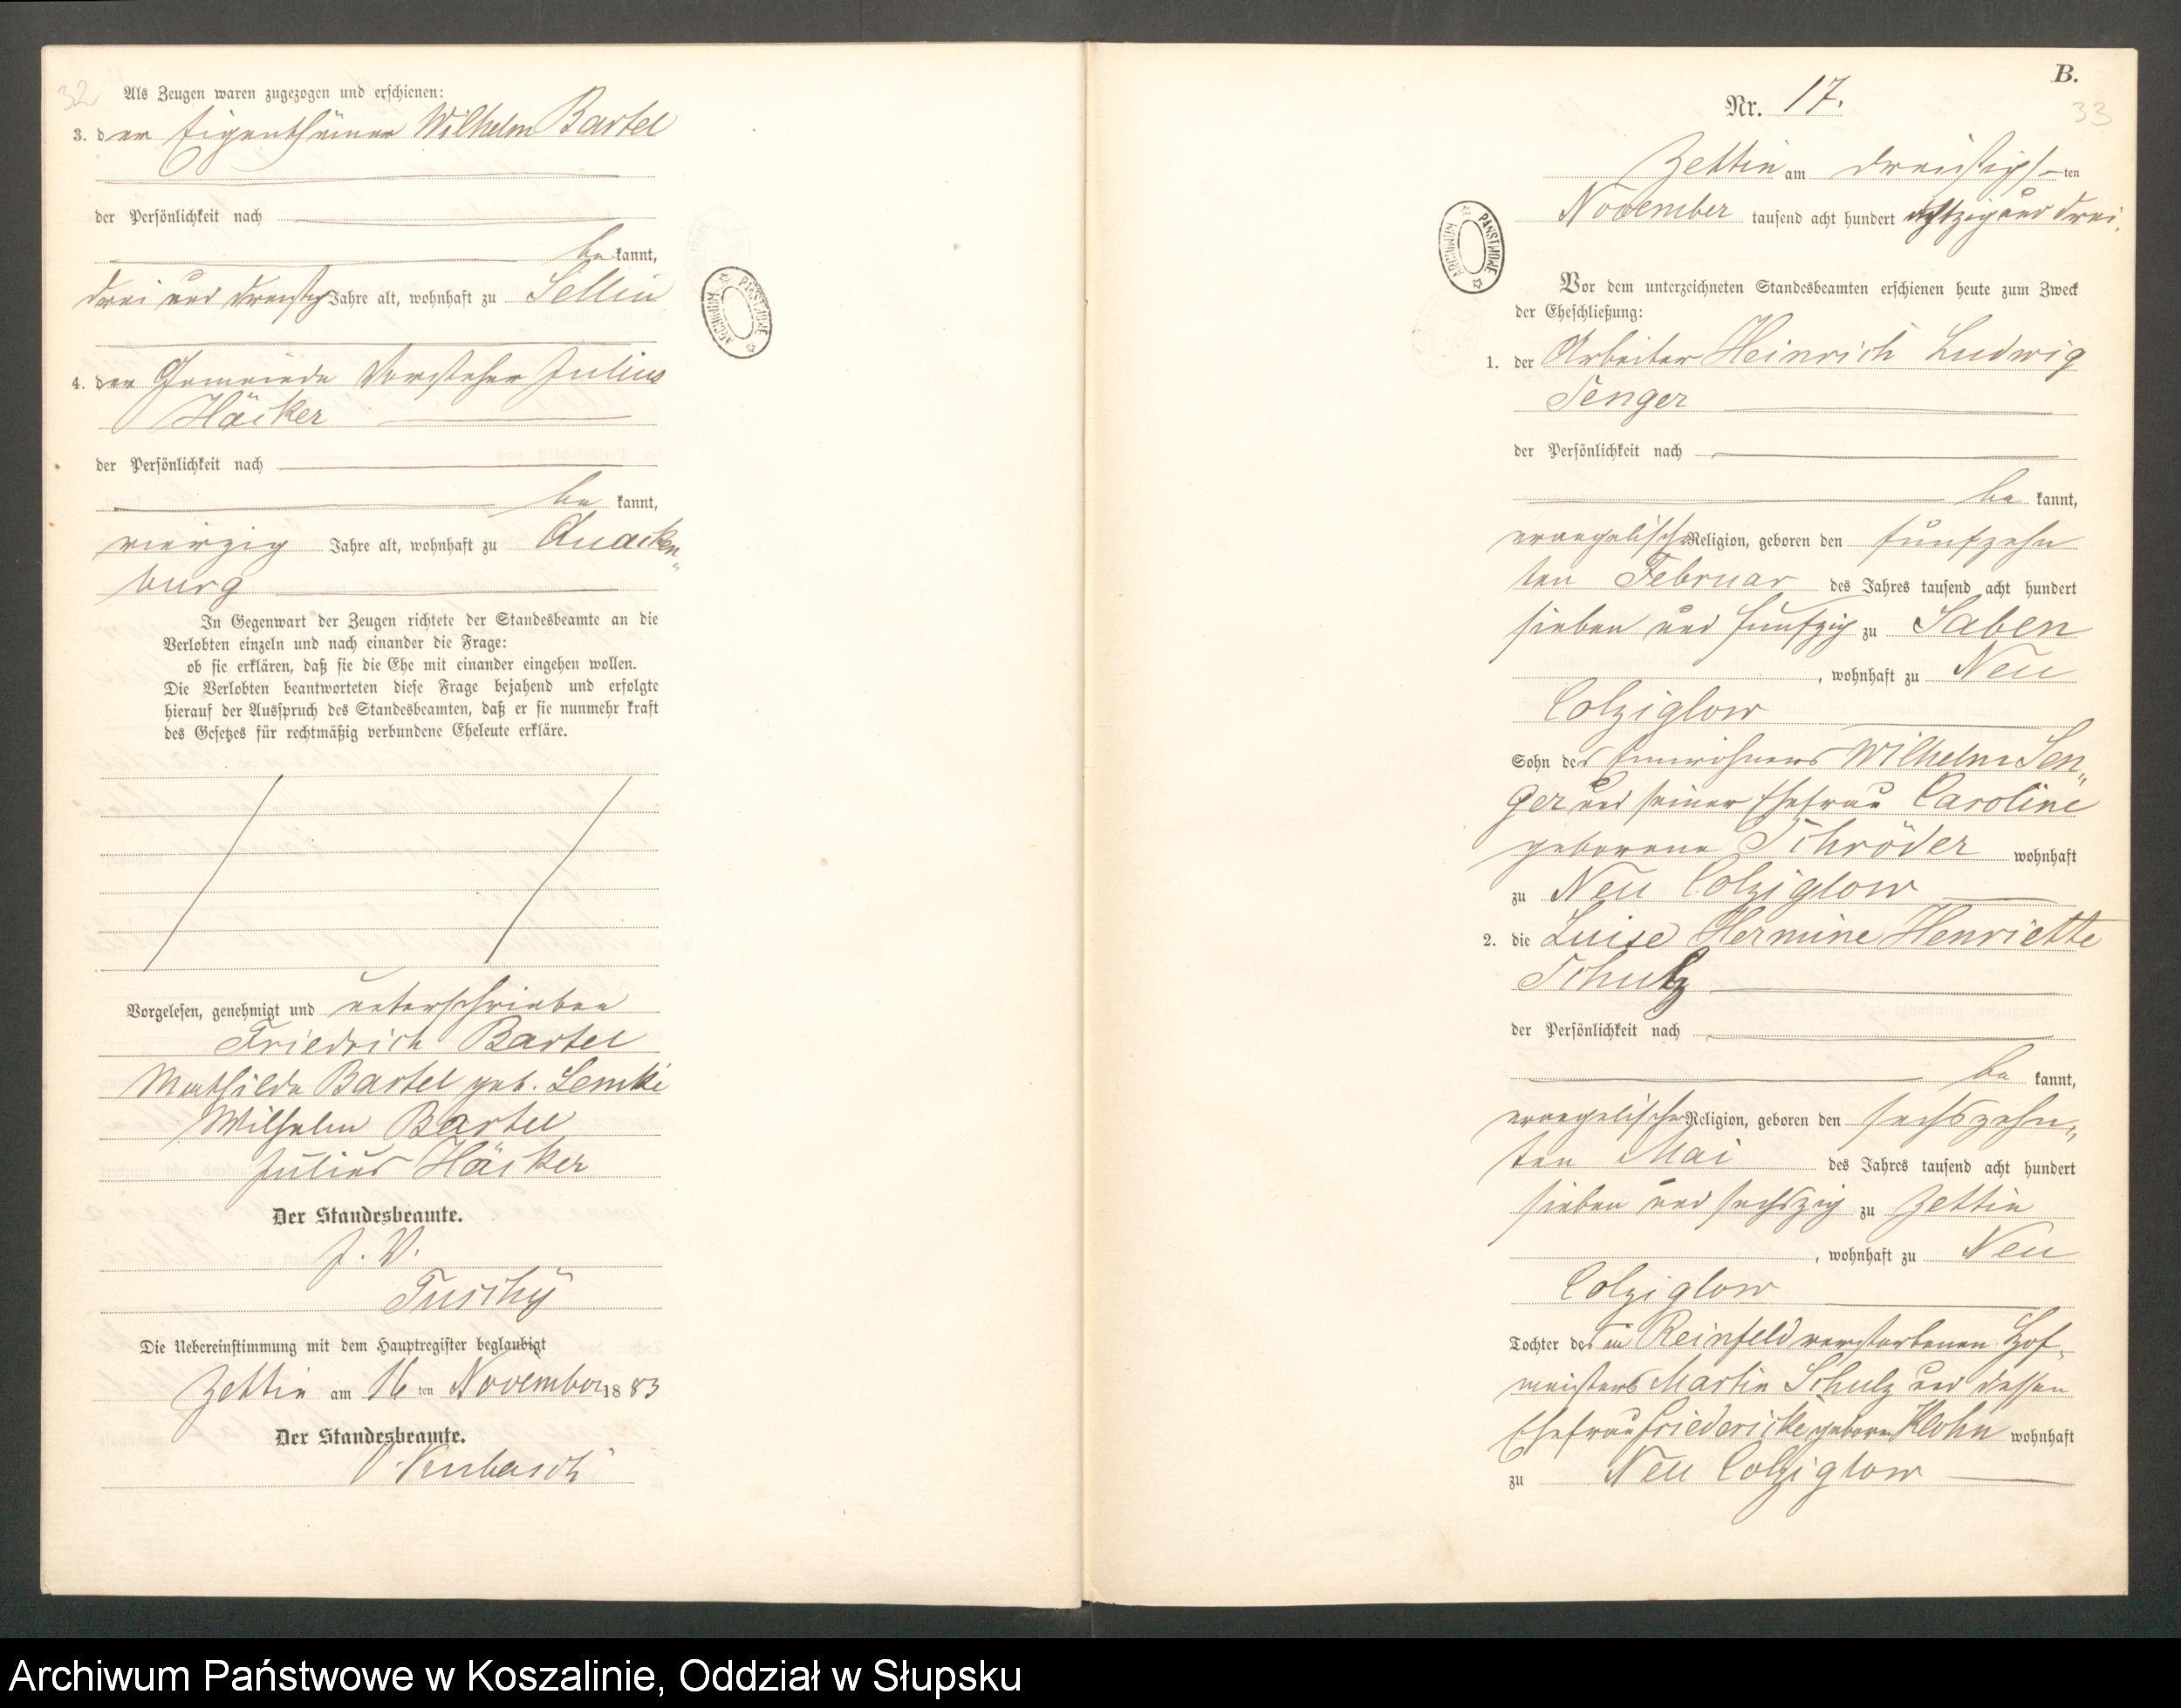 32
Als Zeugen waren zugezogen und erschienen:
3. der Eigenthümer Wilhelm Bartel
der Persönlichkeit nach
be kannt,
drei und dreißig Jahre alt, wohnhaft zu Sellin
4. der Gemeinde Vorsteher Julius
Häcker
der Persönlichkeit nach
be kannt,
vierzig Jahre alt, wohnhaft zu Quacken„
burg
In Gegenwart der Zeugen richtete der Standesbeamte an die
Verlobten einzeln und nach einander die Frage:
ob sie erklären, daß sie die Ehe mit einander eingehen wollen.
Die Verlobten beantworteten diese Frage bejahend und erfolgte
hierauf der Ausspruch des Standesbeamten, daß er sie nunmehr kraft
des Gesetzes für rechtmäßig verbundene Eheleute erkläre.
Vorgelesen, genehmigt und unterschrieben
Friedrich Bartel
Mathilde Bartel geb. Lemke
Wilhelm Bartel
Julius Häcker
Der Standesbeamte.
J. V.
Tuschy
Die Uebereinstimmung mit dem Hauptregister beglaubigt
Zettin am 16 ten November 18 83
Der Standesbeamte.
ARCHIWUM PAŃSTWOWE
B.
Nr. 17.
33
Zettin am dreißigs ten
November tausend acht hundert achtzig und drei.
ARCHIWUM PAŃSTWOWE
Vor dem unterzeichneten Standesbeamten erschienen heute zum Zweck
der Eheschließung:
1. der Arbeiter Heinrich Ludwig
Senger
der Persönlichkeit nach
be kannt,
evangelischer Religion, geboren den fünfzehn
ten Februar des Jahres tausend acht hundert
sieben und fünfzig zu Saben
, wohnhaft zu Neu
Colziglow
Sohn des Einwohners Wilhelm Sen„
ger und seiner Ehefrau Caroline
geborene Schröder wohnhaft
zu Neu Colziglow
2. die Luise Hermine Henriette
Schulz
der Persönlichkeit nach
be kannt,
evangelischer Religion, geboren den sechszehn„
ten Mai des Jahres tausend acht hundert
sieben und sechszig zu Zettin
, wohnhaft zu Neu
Colziglow
Tochter des in Reinfeld verstorbenen Hof„
meisters Martin Schulz und dessen
Ehefrau Friedericke geborne Klohn wohnhaft
zu Neu Colziglow
Archiwum Państwowe w Koszalinie, Oddział w Słupsku